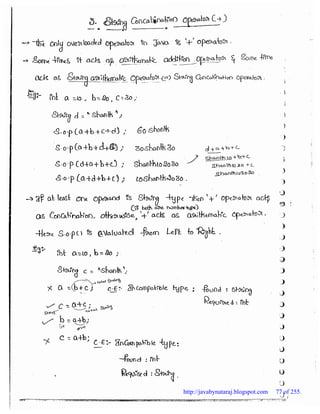 5. String Concatination operator (+)
→ The only overloaded operator in Java is '+' operator.
→ Some times it acts as arithmatic addition operator & Some time
acts as String arithmatic operator (or) String Concatination operator.
Eg:- int a =10, b=20, c=30;
String d = "Shanthi";
S.o.p (a+b+c+d); 60 Shanthi
S.o.p (a+b+d+c); 30Shanthi30
S.o.p (d+a+b+c); Shanthi102030
S.o.p (a+d+b+c); 10Shanthi2030.
d+a+b+c
Shanthi10+b+c
Shanthi1020+c
Shanthi102030
→ If at least one operand is String type then '+' operator acts
as Concatination, otherwise, '+' acts as arithmatic operator.
(If both are number type)
Here S.o.p() is evaluated from Left to Right.
Eg:- int a=10, b=20;
String c = "Shanthi";
x a = (b+c); C.E:- Incompatible type; found : string
Required : int
✓ c = a+c;
✓ b = a+b;
x c = a+b; C.E:- Incompatible type:
found : int
Required : String.
http://javabynataraj.blogspot.com 77 of 255.